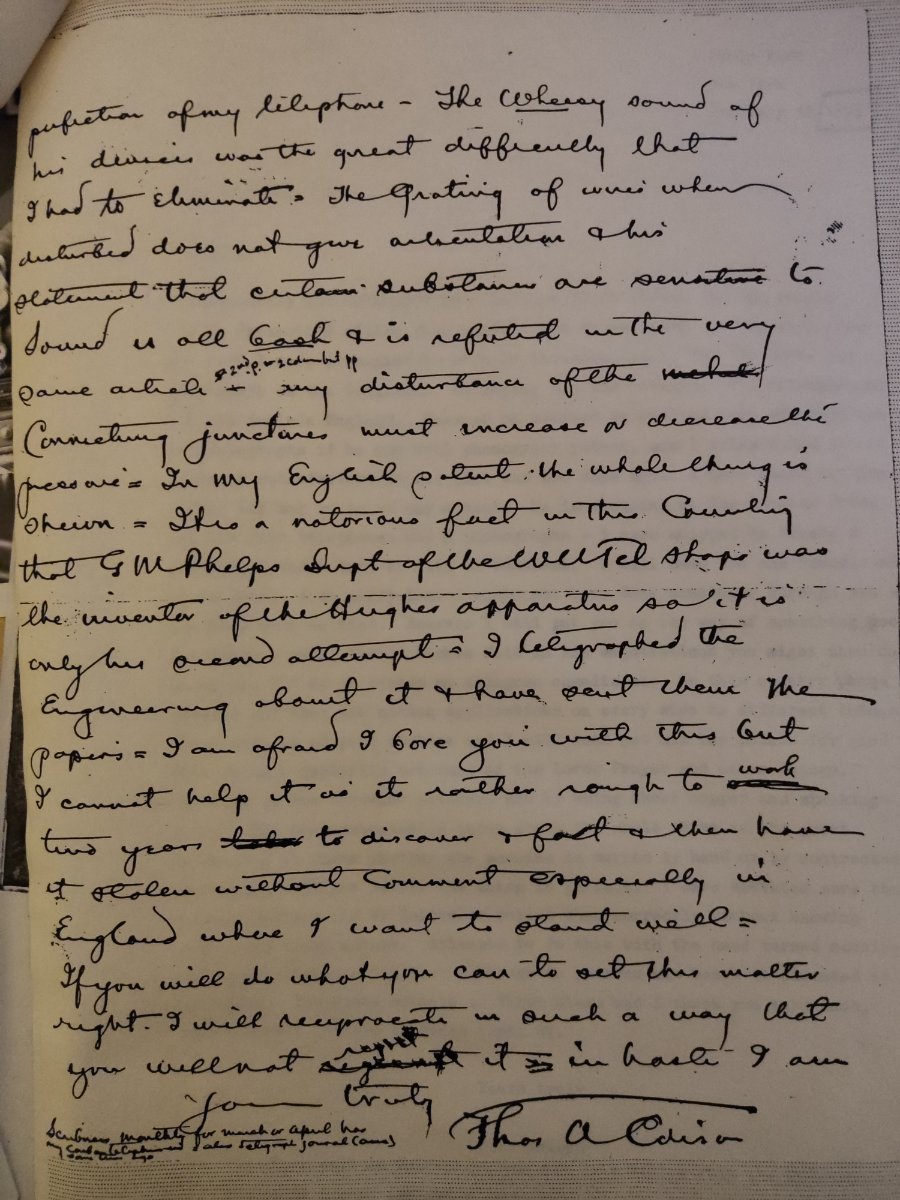 perfection of my telephone - The Wheesy sound of
his devices was the great difficulty that
I had to Eliminate = The Grating of wires when
disturbed does not give articulation & his
statement that certain substances are sensitive to
Sound is all bosh & is refuted in the very
see 2nd p.
same article = any disturbance of the metal
Connecting junctures must increase or decrease the
pressure = In my English patent the whole thing is
shewn = It is a notorious fact in this Country
that G M Phelps Supt of the WU Tel shops was
the inventor of the Hughes apparatus so it is
only his second attempt = I telegraphed the
Engineering about it & have sent them the
papers = I am afraid I bore you with this but
I cannot help it as its rather rough to work
two years to discover a fact & then have
it stolen without comment especially in
England where I want to stand well =
If you will do what you can to set this matter
right. I will reciprocate in such a way that
you will not regret it = in haste I am
Yours truly
Thos A Edison
Scribners Monthly for March or April has
my Carbon telephone also telegraph journal
same time ago